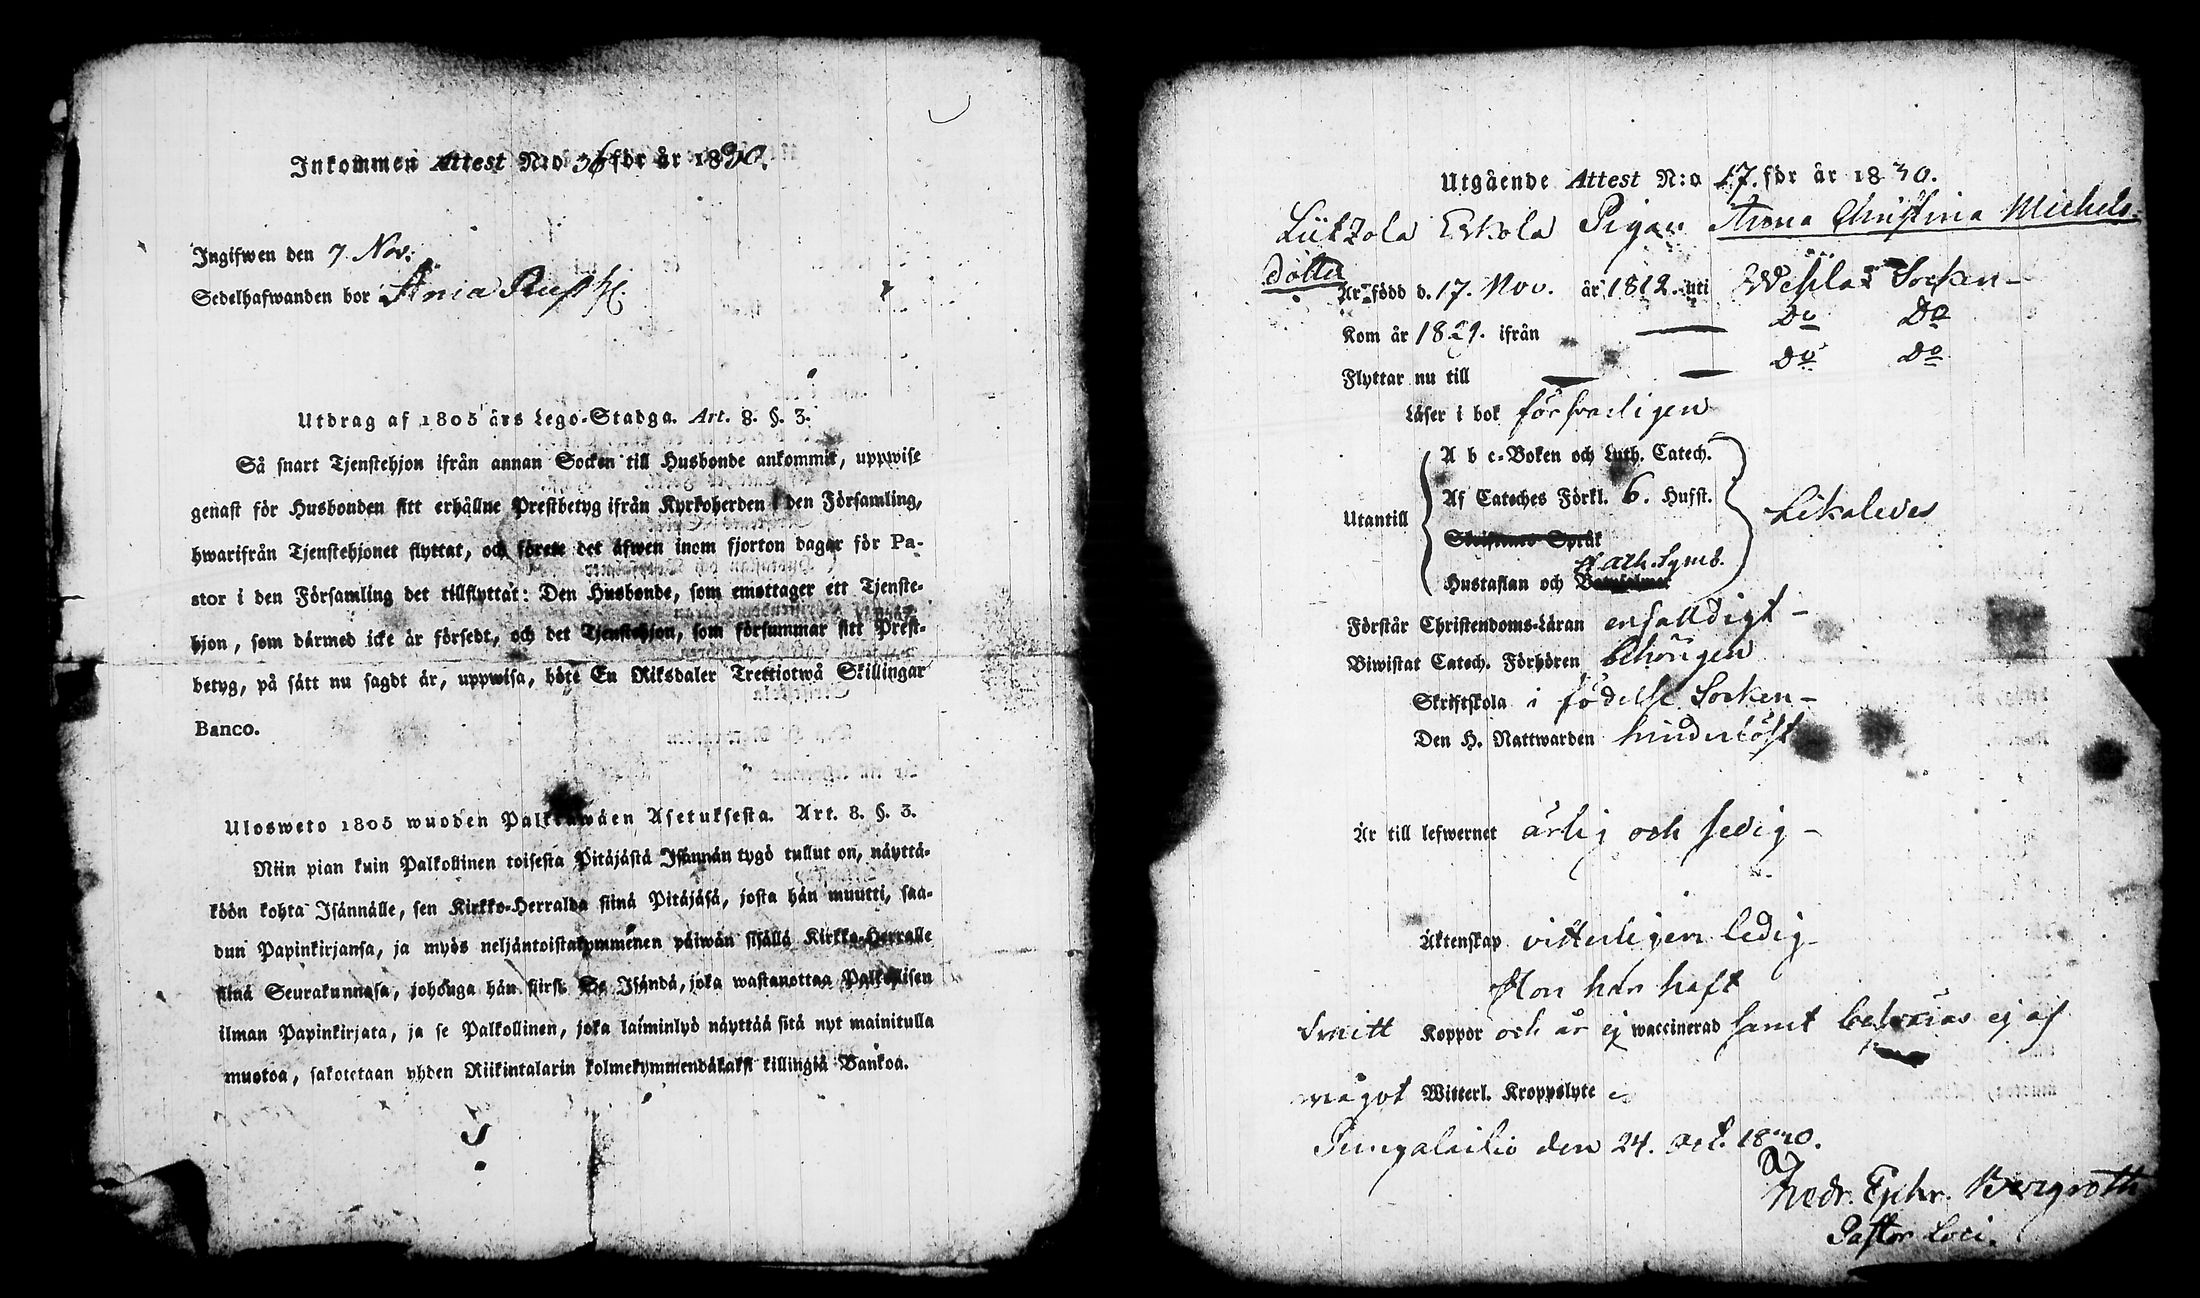 Inkommen Attest N:o 36 för år 1830.
Ingifwen den 7 Nov.
Sedelhafwanden bor
Utdrag af 1805 års Lego-Stadga. Art. 8. §. 3.
Så snart Tjenstehjon ifrån annan Socken till Husbonde ankommit, uppwise
genast för Husbonden sitt erhållne Prestbetyg ifrån Kyrkoherden i den Församling,
hwarifrån Tjenstehjonet flyttat, och förete det äfwen inom fjorton dagar för Pa-
stor i den Församling det tillflyttat: Den Husbonde, som emottager ett Tjenste-
hjon, som därmed icke är försedt, och det Tjenstehjon, som försummar sitt Prest-
betyg, på sätt nu sagdt är, uppwisa, böte En Riksdaler Trettiotwå Skillingar
Banco.
Ulosweto 1805 wuoden Palkkawäen Asetuksesta. Art. 8. §. 3.
Niin pian kuin Palkollinen toisesta Pitäjästä Isännän tygö tullut on, näyttä-
köön kohta Isännälle, sen Kirkko-Herralda siinä Pitäjäsä, josta hän muutti, saa-
dun Papinkirjansa, ja myös neljäntoistakymmenen päiwän sisällä Kirkko-Herralle
siinä Seurakunnasa, johonga hän siirsi. Se Isändä, joka wastanottaa Palkollisen
ilman Papinkirjata, ja se Palkollinen, joka laiminlyö näyttää sitä nyt mainitulla
muotoa, sakotetaan yhden Riikintalarin kolmekymmendäkaksi killingiä Bankoa.
Utgående Attest N:o 17. för år 1830.
Liikola Eskola Pigan Anna Christina Michels-
dotter
Är född d. 17. Nov. år 1812. uti Wesilax Socken –
Kom år 1829. ifrån — Do Do
Flyttar nu till — — Do Do
Läser i bok försvarligen
Utantill
A b c-Boken och Luth. Catech.
Af Cateches Förkl. 6. Hufst.
Skriftenes Språk
Ath. Symb.
Hustaflan och
Likaledes
Förstår Christendoms-Läran enfalldigt –
Biwistat Catech. Förhören behörigen
Skriftskola i födelse Socken –
Den H. Nattwarden hinderlöst
Är till lefwernet ärlig och sedig –
Äktenskap vitterligen ledig –
Hon har haft
Smitt Koppor och är ej waccinerad samt besväras ej af
något Witterl. Kroppslyte
Pungalaitio den 24. Oct. 1830.
Fredr. Ephr. Bergroth
Pastor Loci.